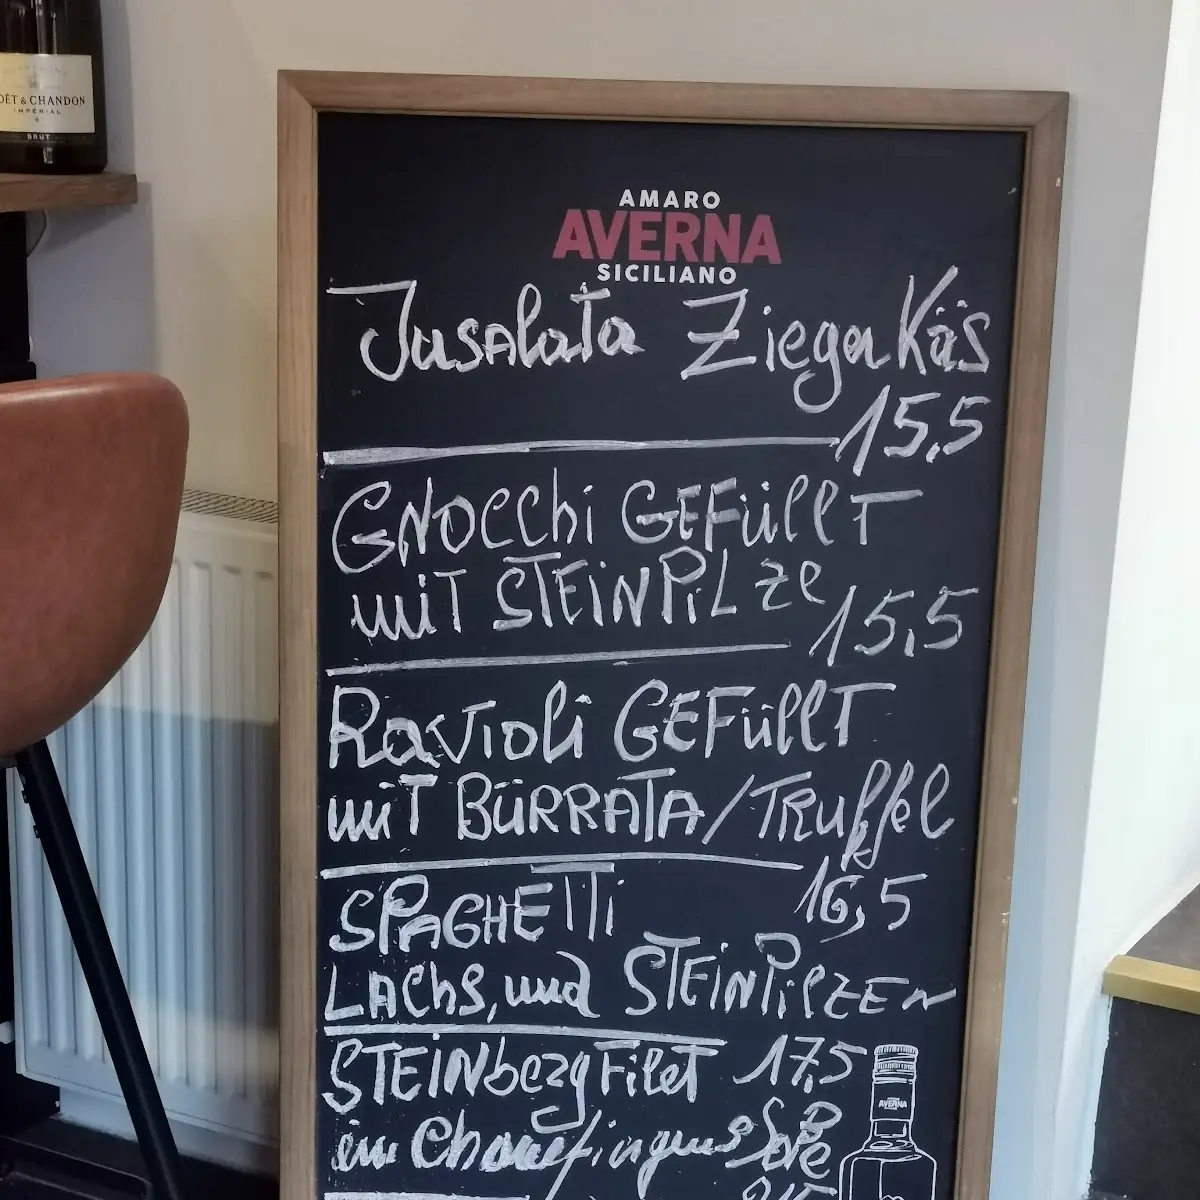 OËT & CHANDON
IMPÉRIAL
BRUT
AMARO
AVERNA
SICILIANO
Jusalata ZiegenKäs
15,5
GNOCCHi GEFüllT
miT STEiNPiLze
15,5
Ravioli GEFüllT
miT BÜRRATA/TRuffel
16,5
SPAGHETTi
LAChs, und STEiNPilzEn
17,5
STEiNbezgFilet
im
AVERNA